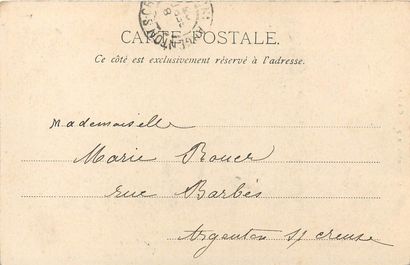 ARGENTON S CR
CARTE POSTALE.
Ce côté est exclusivement réservé à l'adresse.
Mademoiselle
Marie
rue Barbès
Argenton s/ creuse